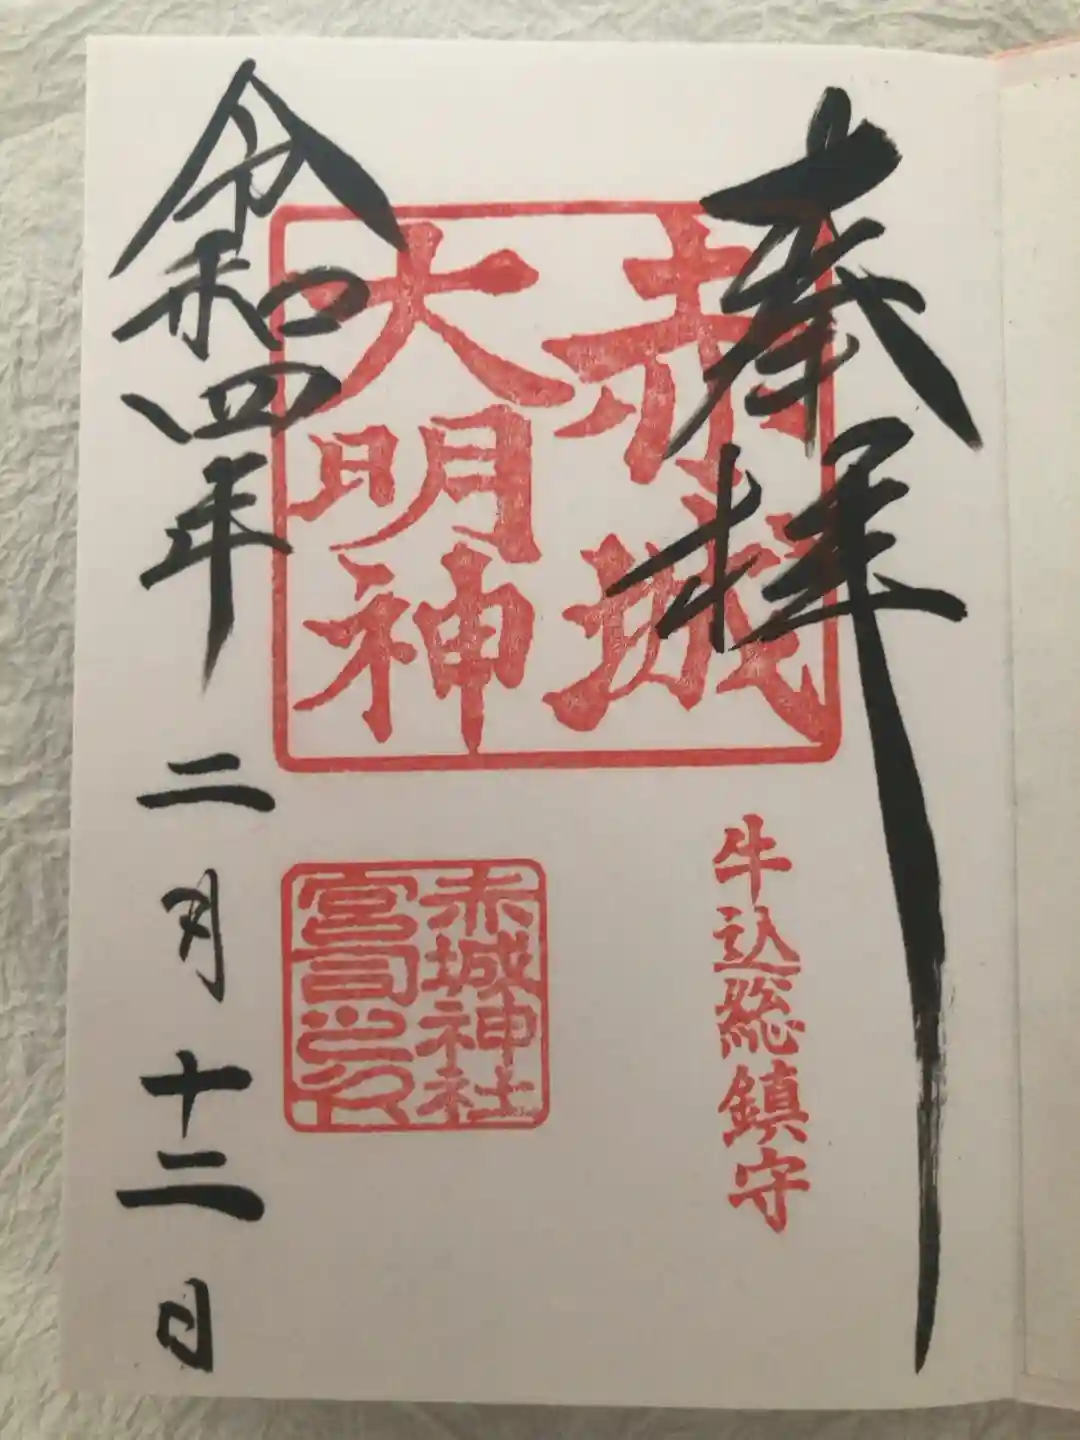 奉拝
赤城
大明神
牛込総鎮守
赤城神社
宮司之印
令和四年二月十二日